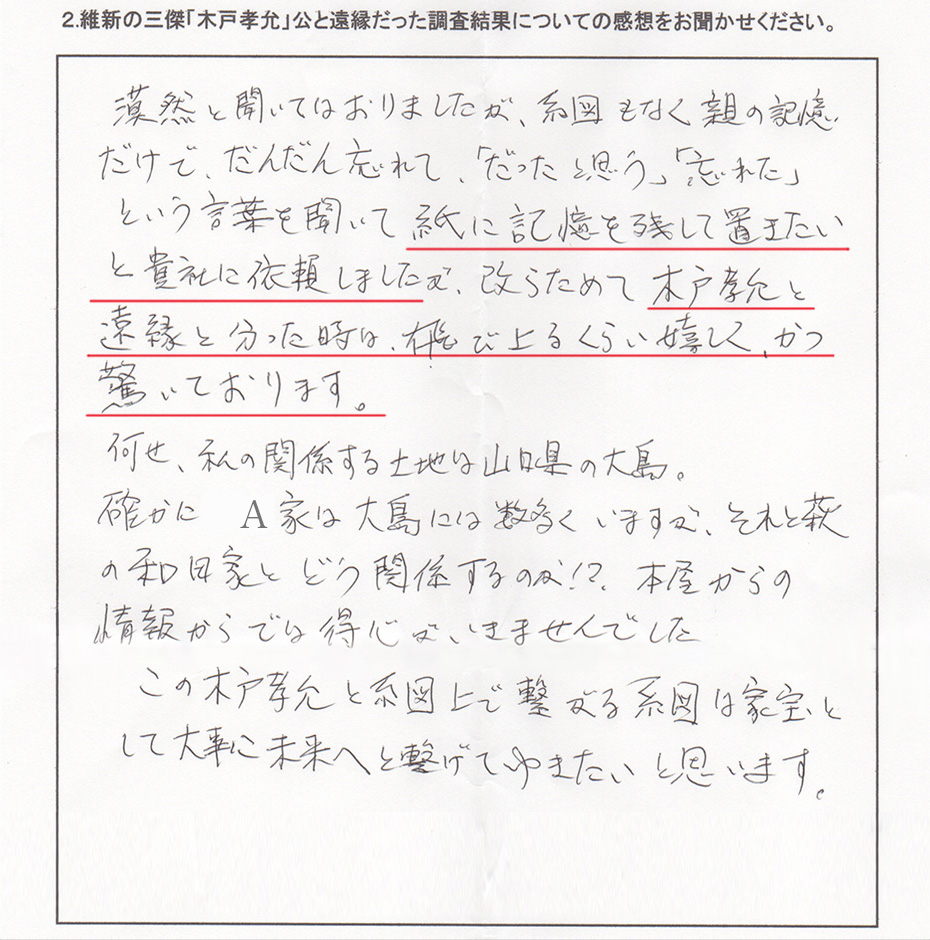 2.維新の三傑「木戸孝允」公と遠縁だった調査結果についての感想をお聞かせください。
漠然と聞いてはおりましたが、系図もなく親の記憶
だけで、だんだん忘れて、「だったと思う」「忘れた」
という言葉を聞いて紙に記憶を残して置きたい
と貴社に依頼しましたが、改らためて木戸孝允と
遠縁と分った時は、飛び上るくらい嬉しく、かつ
驚いております。
何せ、私の関係する土地は山口県の大島。
確かに A家は大島には数多くいますが、それと萩
の和田家とどう関係するのか!?. 本屋からの
情報からでは得心がいきませんでした
この木戸孝允と系図上で繋がる系図は家宝と
して大事に未来へと繋げてゆきたいと思います。